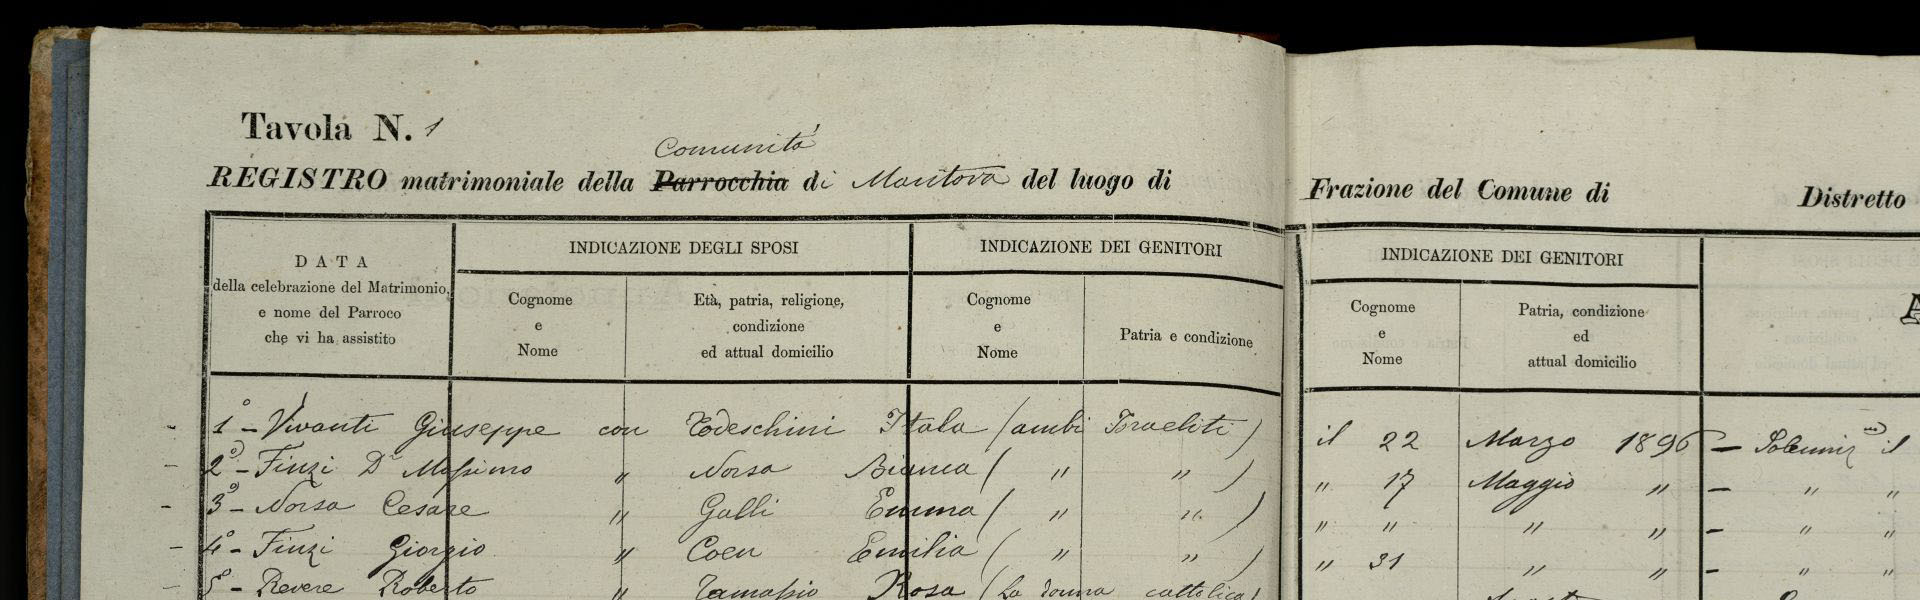 Tavola N. 1
Comunità
REGISTRO matrimoniale della Parrocchia di Mantova del luogo di
Frazione del Comune di
Distretto
DATA
della celebrazione del Matrimonio,
e nome del Parroco
che vi ha assistito
INDICAZIONE DEGLI SPOSI
Cognome
e
Nome
Età, patria, religione,
condizione
ed attual domicilio
INDICAZIONE DEI GENITORI
Cognome
e
Nome
Patria e condizione
INDICAZIONE DEI GENITORI
Cognome
e
Nome
Patria, condizione
ed
attual domicilio
1° - Vivanti Giuseppe con Todeschini Itala (ambi Israeliti) il 22 Marzo 1896 - il
2° - Finzi Dr Massimo " Norsa Bianca ( " " ) " 17 Maggio " - " "
3° - Norsa Cesare " Galli Emma ( " " ) " " " " - " "
4° - Finzi Giorgio " Coen Emilia ( " " ) " 31 " " - " "
5° - Revere Roberto " Tamassio Rosa (la donna cattolica)